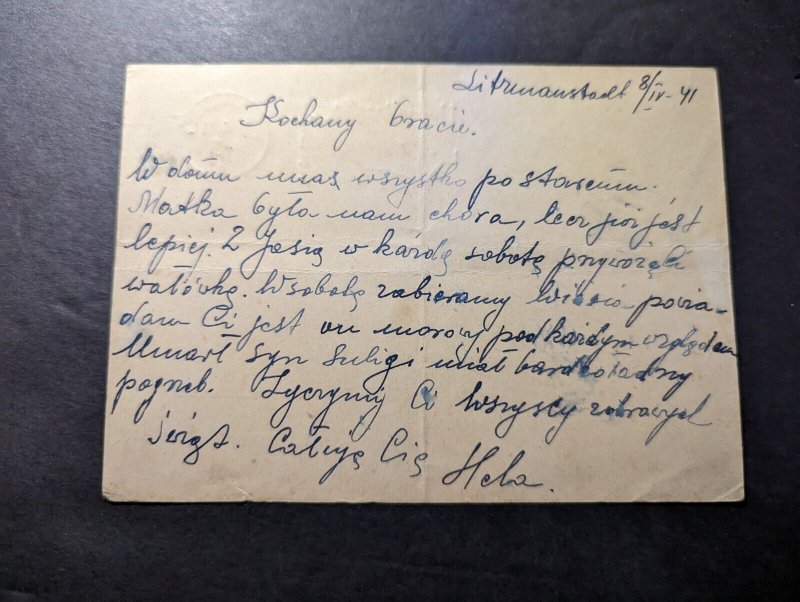 Litzmannstadt 8/IV-41
Kochany bracie.
W domu unas wszystko po staremu.
Matka była nam chora, lecz już jest
lepiej. Z Jasią w każdą sobotę przywozili
wałówkę. W sobotę zabieramy powia-
dam Ci jest on morowy pod każdym względem
Umarł syn Suligi miał bardzo ładny
pogrzeb. Życzymy Ci wszyscy zdrowych
świąt. Całuję Cię Hela.